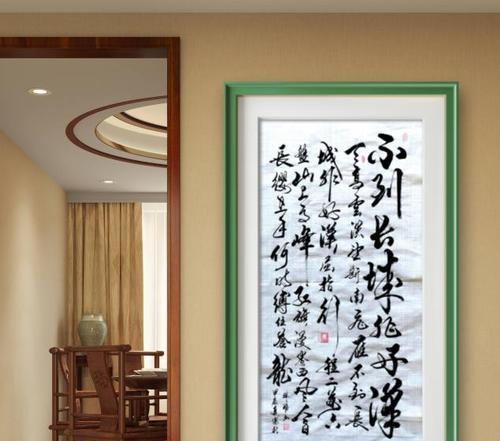 不到长城非好漢
天高雲淡望断南飛雁不到長
城非好漢屈指行程二萬六
盤山上高峰红旗漫卷西风今日
長缨在手何时缚住苍龍